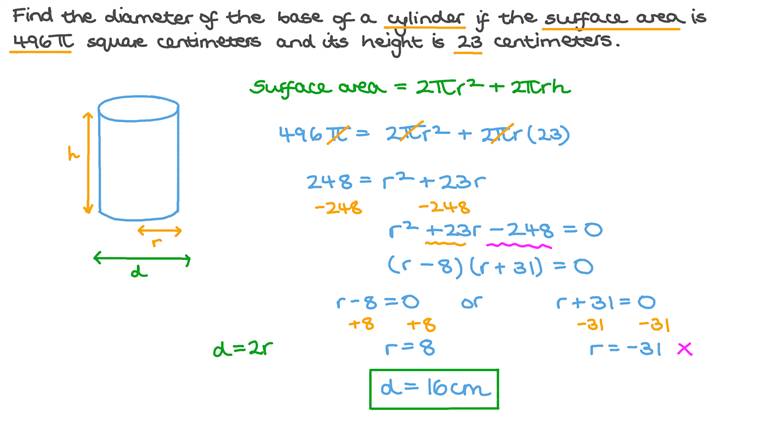 Find the diameter of the base of a cylinder if the surface area is
496π square centimeters and its height is 23 centimeters.
Surface area = 2πr² + 2πrh
496π = 2πr² + 2πr(23)
h
248 = r² + 23r
-248 -248
r² +23r -248 = 0
r
(r - 8)(r + 31) = 0
d
r - 8 = 0 or r + 31 = 0
+8 +8 -31 -31
d = 2r r = 8 r = -31 ×
d = 16cm